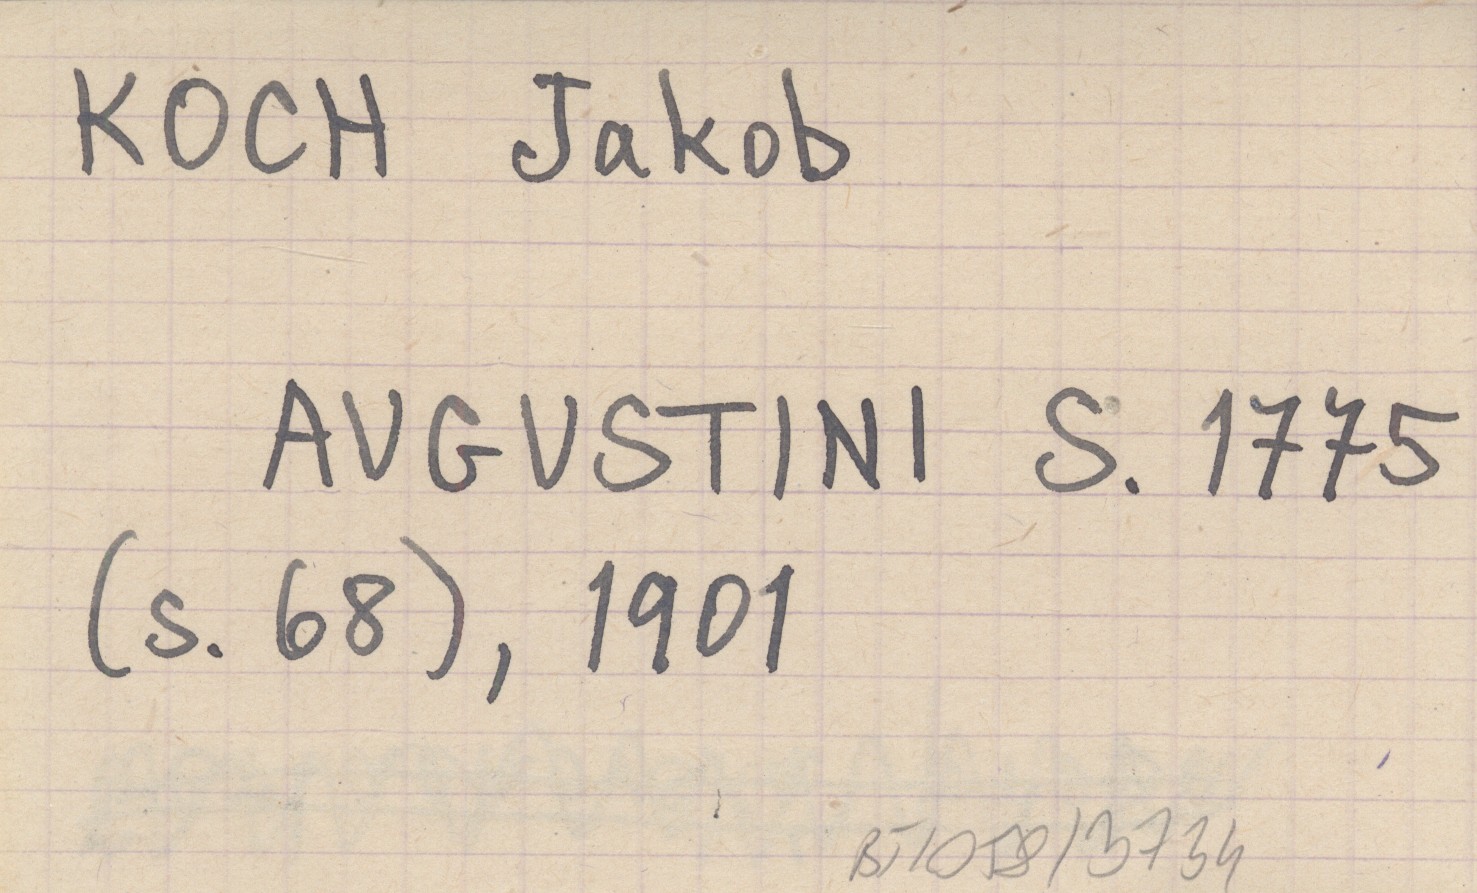 KOCH Jakob
AUGUSTINI S. 1775
(s. 68), 1901
BT/1058/3734